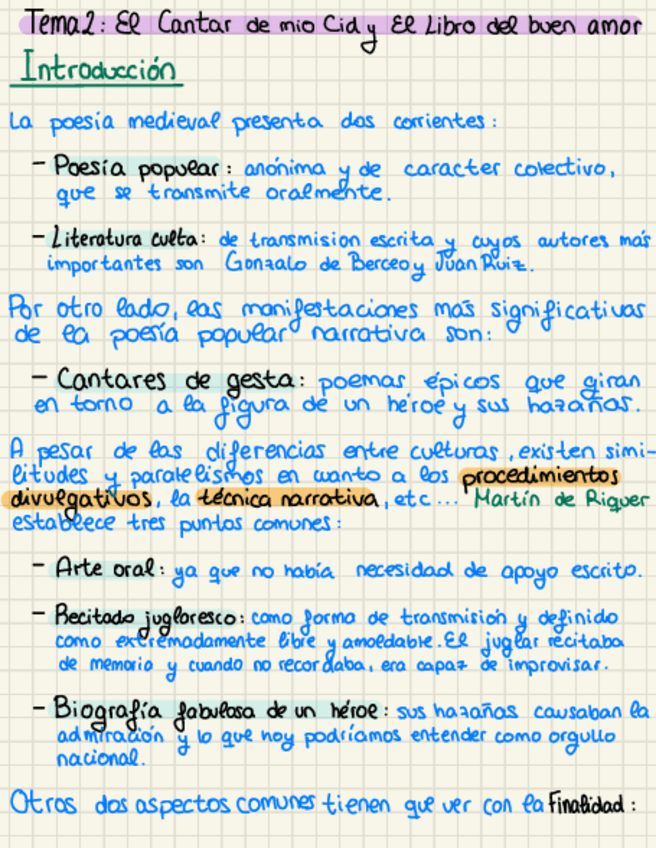 Tema2: El Cantar de mio Cid y El Libro del buen amor
Introducción
La poesía medieval presenta dos corrientes:
- Poesía popular: anónima y de caracter colectivo,
que se transmite oralmente.
- Literatura culta: de transmision escrita y cuyos autores más
importantes son Gonzalo de Berceo y Juan Ruiz.
Por otro lado, las manifestaciones más significativas
de la poesía popular narrativa son:
- Cantares de gesta: poemas épicos que giran
en torno a la figura de un héroe y sus hazañas.
A pesar de las diferencias entre culturas, existen simi-
litudes y paralelismos en cuanto a los procedimientos
divulgativos, la técnica narrativa, etc... Martín de Riquer
establece tres puntos comunes:
- Arte oral: ya que no había necesidad de apoyo escrito.
- Recitado juglaresco: como forma de transmisión y definido
como extremadamente libre y amoldable. El juglar recitaba
de memoria y cuando no recordaba, era capaz de improvisar.
- Biografía fabulosa de un héroe: sus hazañas causaban la
admiración y lo que hoy podríamos entender como orgullo
nacional.
Otros dos aspectos comunes tienen que ver con la Finalidad: